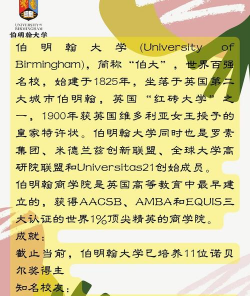 UNIVERSITY OF
BIRMINGHAM
伯明翰大学
伯明翰大学(University of
Birmingham)，简称“伯大”，世界百强
名校，始建于1825年，坐落于英国第二
大城市伯明翰，英国“红砖大学”之
一，1900年获英国维多利亚女王授予的
皇家特许状。伯明翰大学同时也是罗素
集团、米德兰兹创新联盟、全球大学高
研院联盟和Universitas21创始成员。
伯明翰商学院是英国高等教育中最早建
立的，获得AACSB、AMBA和EQUIS三
大认证的世界1%顶尖精英的商学院。
成就：
截止当前，伯明翰大学已培养11位诺贝
尔奖得主
知名校友：